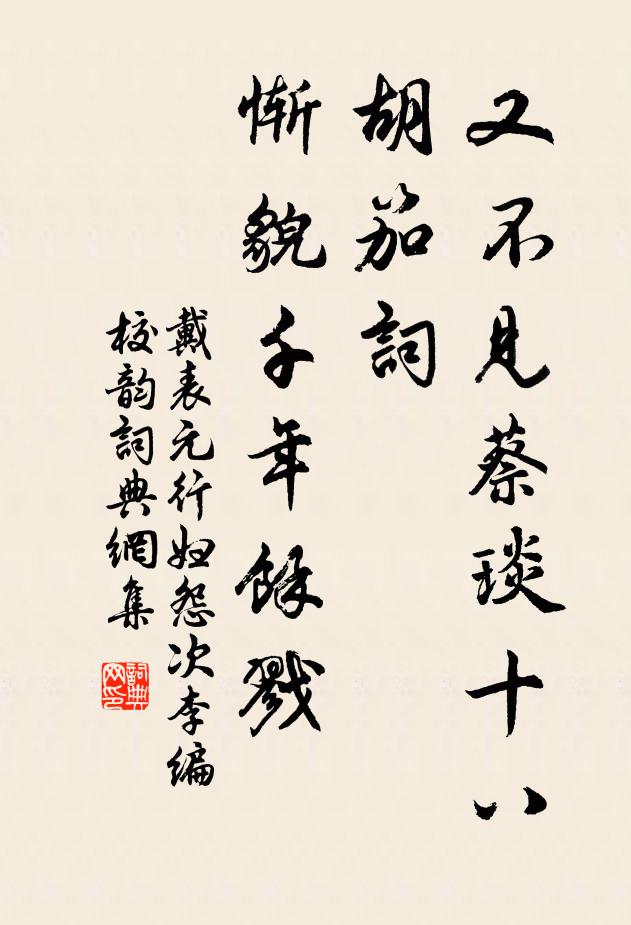 又不見蔡琰十八
胡笳詞
慚貌千年餘戮
戴表元行婦怨次李編
校韵詞典網集
詞典
网印